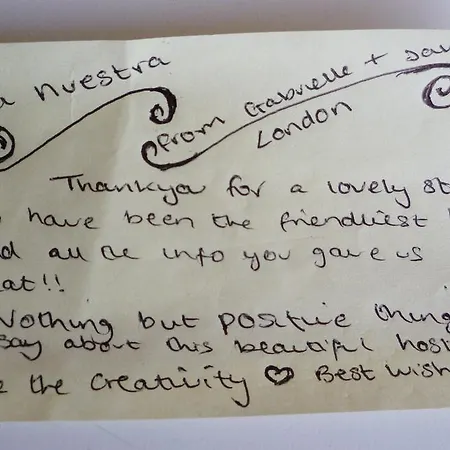 a nuestra
From Gabrielle +
London
Thankyou for a lovely st
have been the friendliest
d all the info you gave us
at!!
Nothing but positive thing
say about this beautiful hos
e the creativity ♡ Best wish